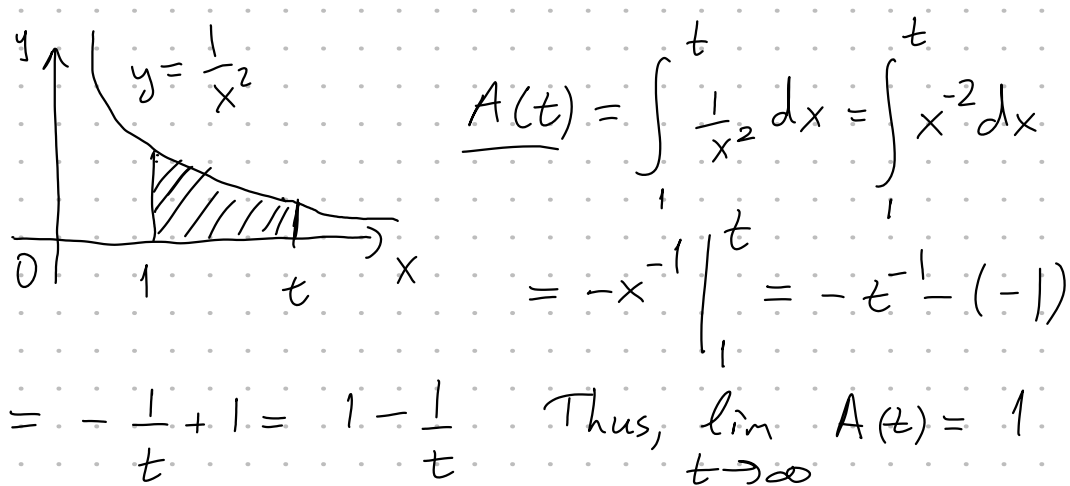 y
y = 1/x²
0 1 t x
A(t) = ∫₁ᵗ 1/x² dx = ∫₁ᵗ x⁻² dx
= -x⁻¹ |₁ᵗ = -t⁻¹ - (-1)
= - 1/t + 1 = 1 - 1/t Thus, lim t→∞ A(t) = 1